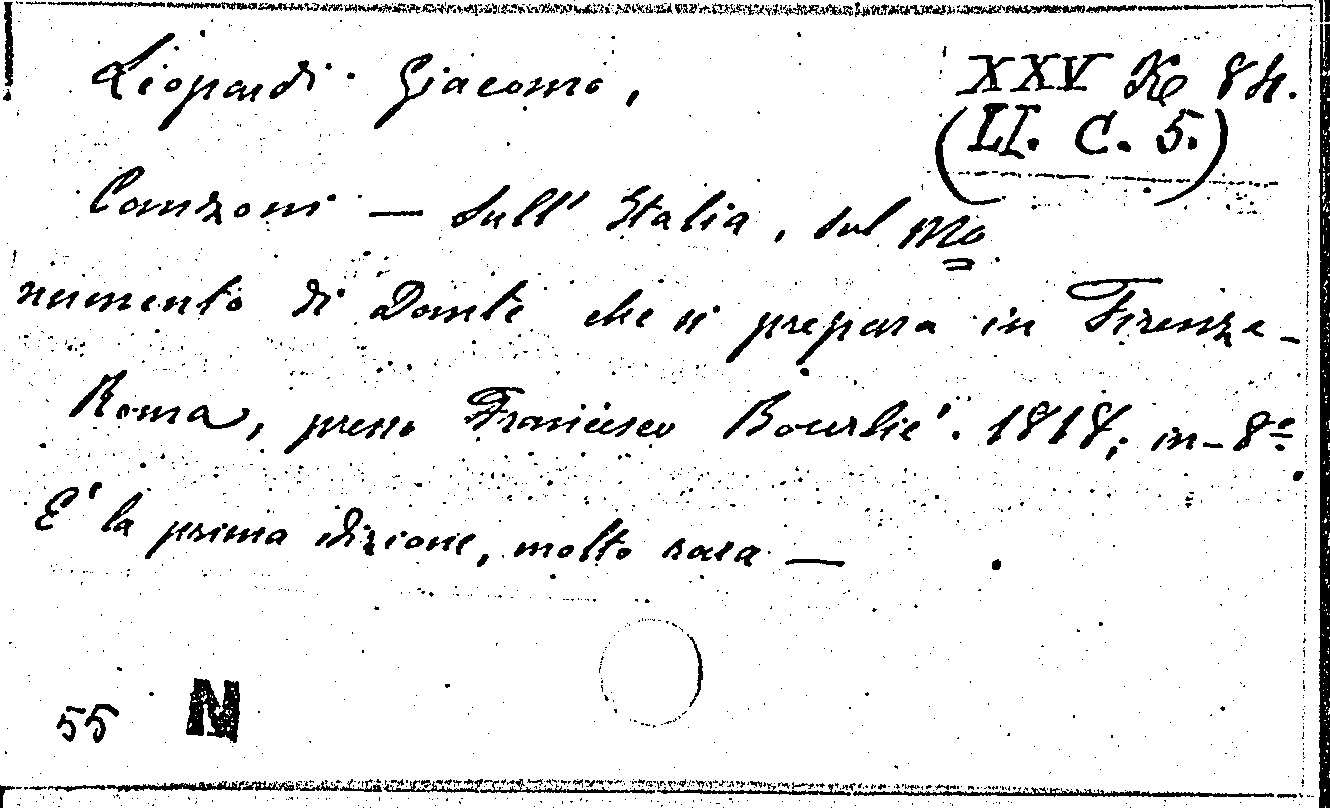 Leopardi Giacomo,
XXV K 84.
(LI. C. 5.)
Canzoni — sull' Italia, sul Mo
numento di Dante che si prepara in Firenze -
Roma, presso Francesco Bourlié. 1818; in-8º.
E' la prima edizione, molto rara —
55 N